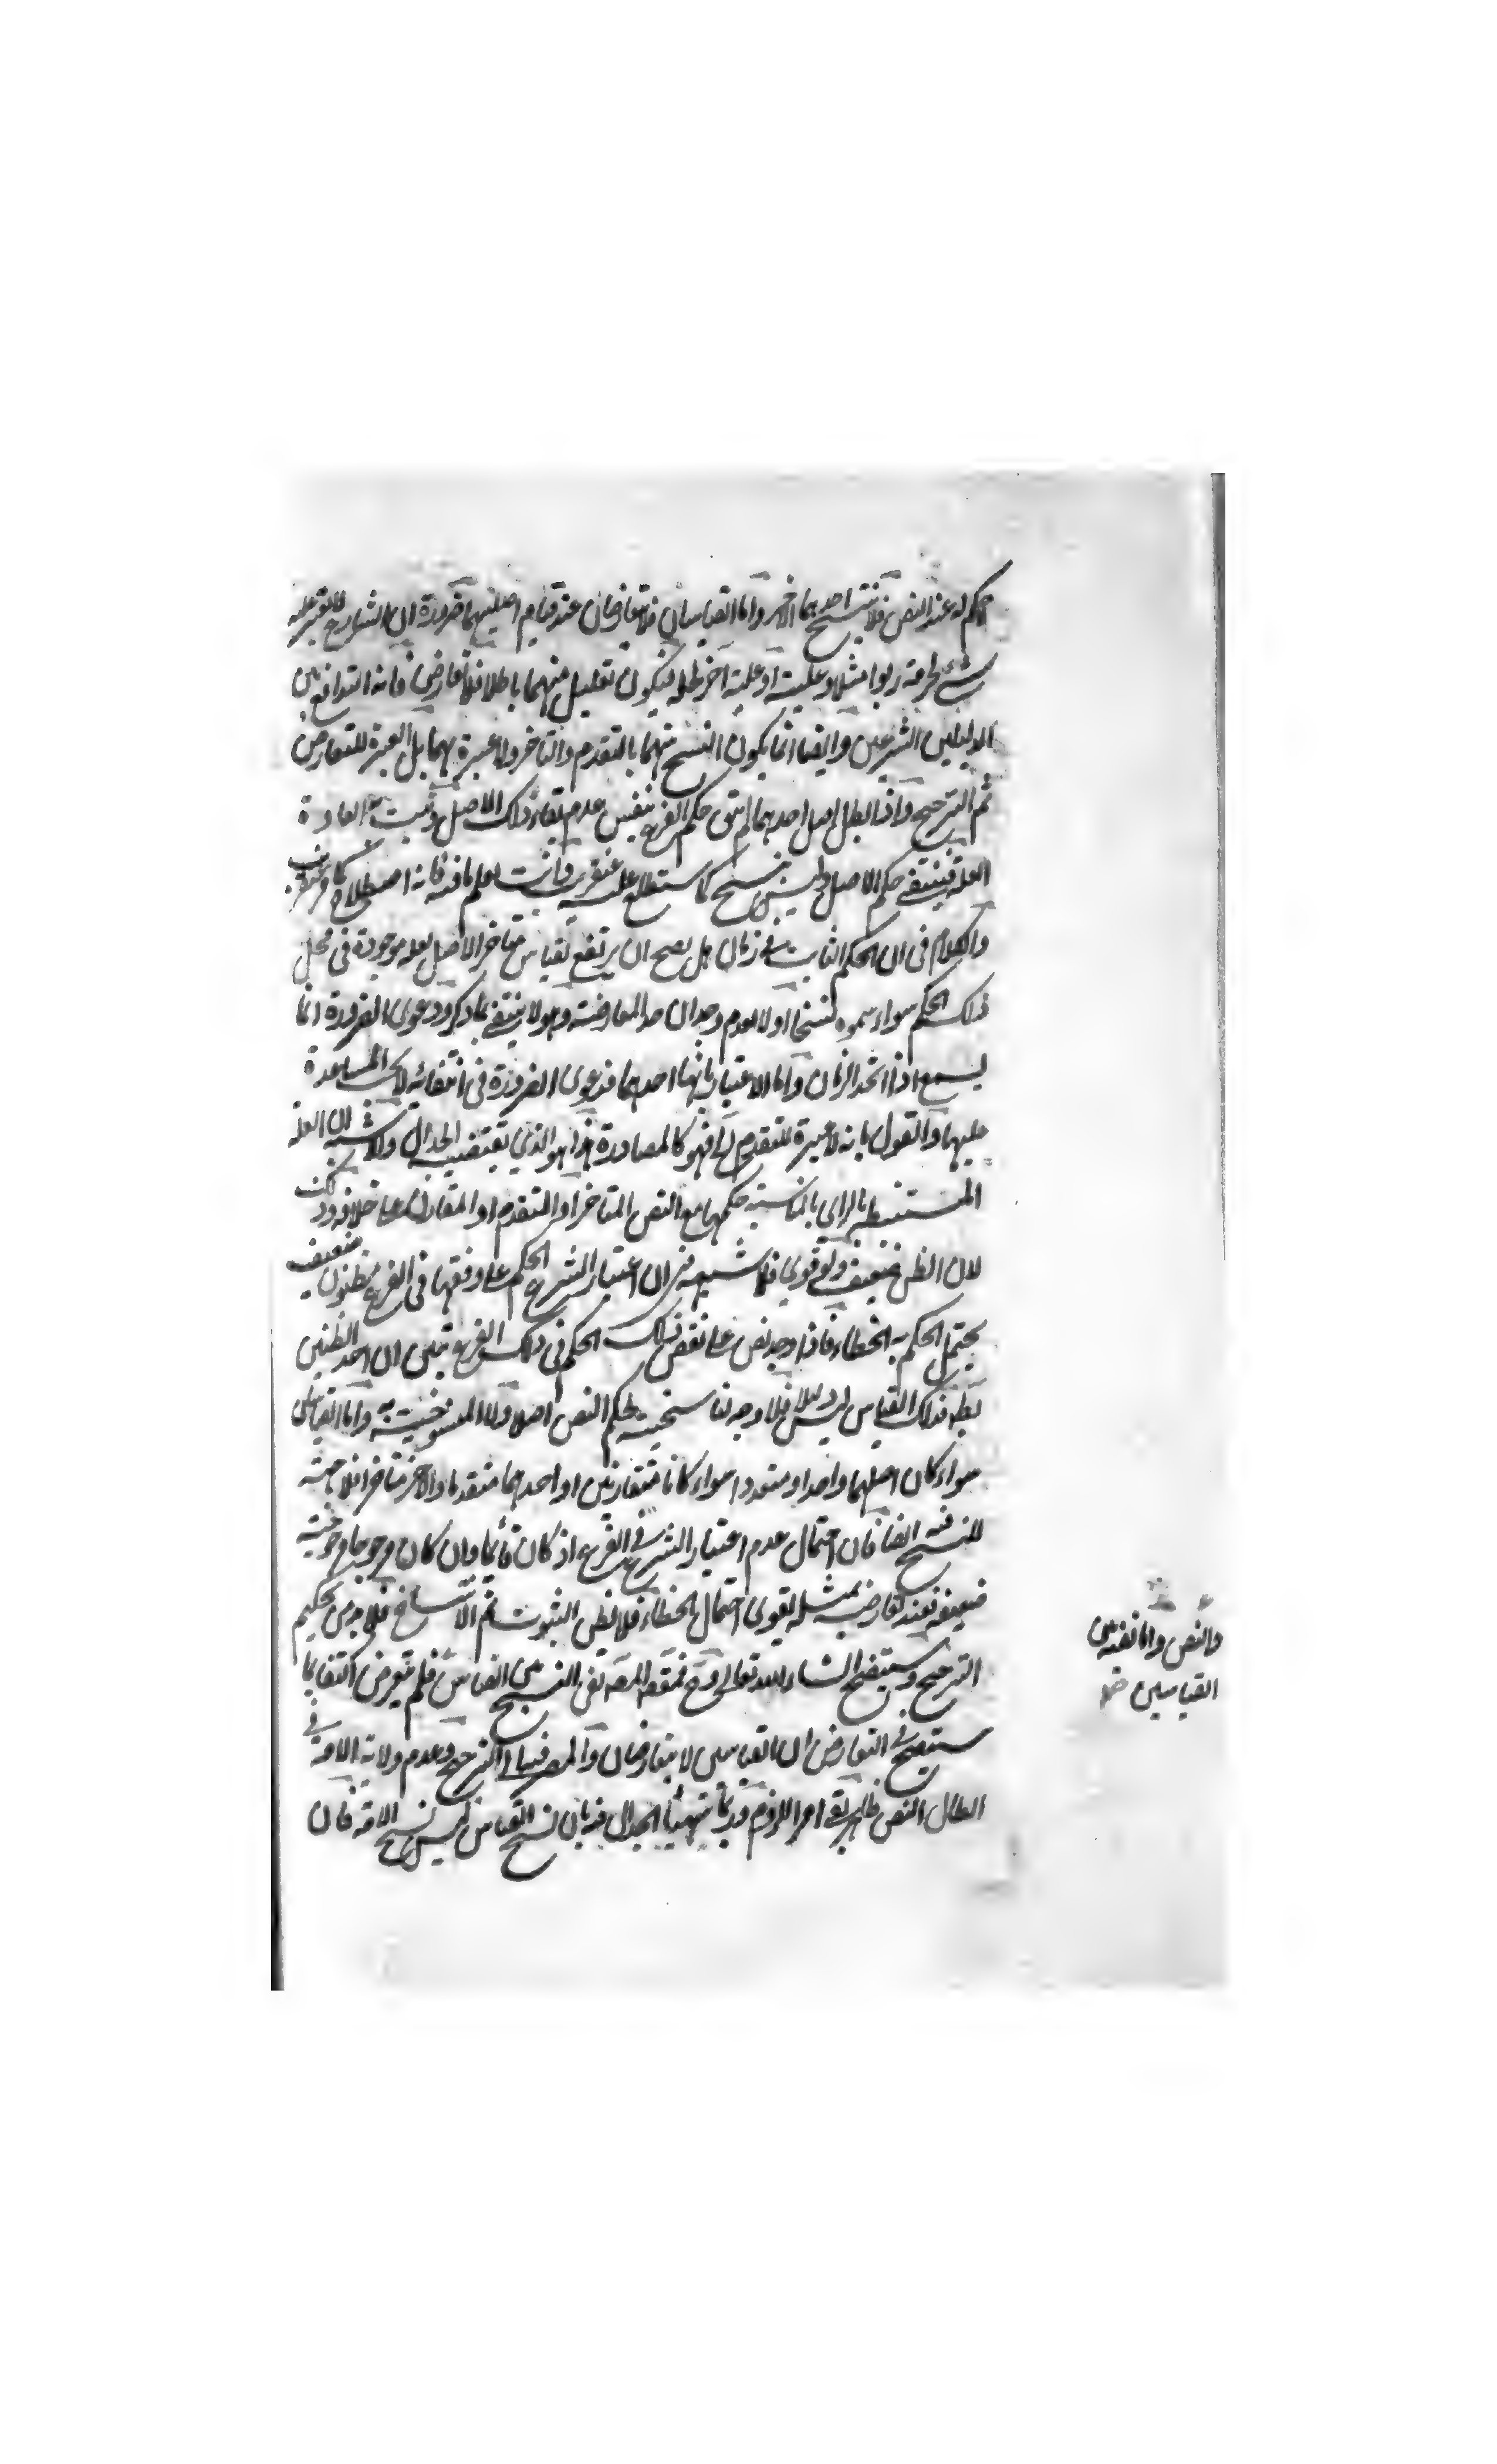 حكم له عند النص فلا ينتسخ احدهما الاخر واما القياسان فلا يتعارضان عند قيام اصليهما ضرورة ان الشارع
شئ لحرمة ربوا مثلا وعليته او علية آخر لحله فيكون تعليل منهما باطلا فلا تعارض فانه التدافع بين
الدليلين الشرعيين وايضا انما يكون النسخ منهما بالتقدم والتاخر ولا عبرة بهما بل العبرة للتعارض
ثم الترجيح واذا بطل اصل احدهما لم يبق حكم الفرع بنفس عدم بقاء ذلك الاصل
العلة فينتفى حكم الاصل وليس بنسخ كما ستطلع عليه عنقريب وانت تعلم ما فيه فانه اصطلاح
والكلام فى ان الحكم الثابت فى زمان هل يصح ان يرتفع بقياس متاخر الاصل بعلة موجودة فى محل
ذلك الحكم سواء سموه نسخا او لا لعدم وجدان حد المعارضة وهو لا ينتفى بما ذكر ودعوى الضرورة انما
يسمع اذا اتحد الزمان واما الاعتبار بانتهاء احدهما فدعوى الضرورة فى انتفائه لا يجد المساعدة
عليها والقول بانه لا عبرة للتقدم الخ فهو كالمصادرة هذا هو الذي يقتضيه الجدال ولا شبهة ان العلة
المستنبطة بالراى بالمناسبة حكمها مع النص المتاخر او المتقدم او المقارن على خلافه وذلك
لان الظن ضعيف ولو قوى فلا شبهة فى ان اعتبار الشرع الحكم على وفقها فى الفرع مظنون ضعيف
يحتمل الحكم به الخطاء فاذا وجد نص على نقض ذلك الحكم فى ذلك الفرع تبين ان احد الظنين
بطل فذلك القياس ليس دليلا فلا وجه لناسخيته لحكم النص اصلا ولا المنسوخيته به واما القياسان
سواء كان اصلهما واحدا او متعددا سواء كانا متقارنين او احدهما متقدما والآخر متاخرا فلا جهة
للنسخ فيه ايضا فان احتمال عدم اعتبار الشرع فى الفرع اذ كان قائما وان كان مرجوحا
ضعيفة فعند تعارضه بمثله يقوى احتمال الخطاء فلا نظن الثبوت ثم الانتساخ فلا بد من تحكيم
الترجيح وستيضح انشاء الله تعالى فمقصد المصـ نفى النسخ من القياس فلم يتعرض اكتفاء بما
ستيضح فى التعارض ان القياسين لا يتعارضان والمصرف الى الترجيح وعدم ولاية الامة فى
ابطال النص ظاهر بقى امر اللزوم وربما يتهيأ الجدال فيه بان نسخ القياس ليس نسخ الامة فان
والنص واما بعد بين
القياسين